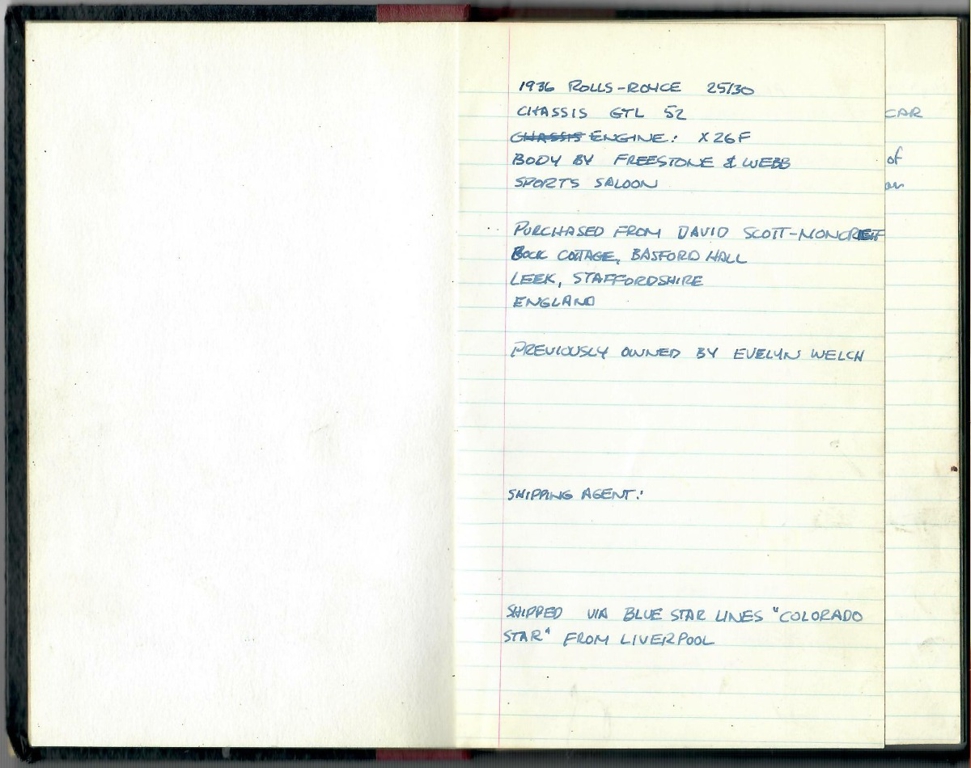 1936 ROLLS-ROYCE 25/30
CHASSIS GTL 52
CHASSIS ENGINE: X26F
BODY BY FREESTONE & WEBB
SPORTS SALOON
PURCHASED FROM DAVID SCOTT-MONCRIEFF
BUCK COTTAGE, BASFORD HALL
LEEK, STAFFORDSHIRE
ENGLAND
PREVIOUSLY OWNED BY EVELYN WELCH
SHIPPING AGENT:
SHIPPED VIA BLUE STAR LINES "COLORADO
STAR" FROM LIVERPOOL
CAR
of